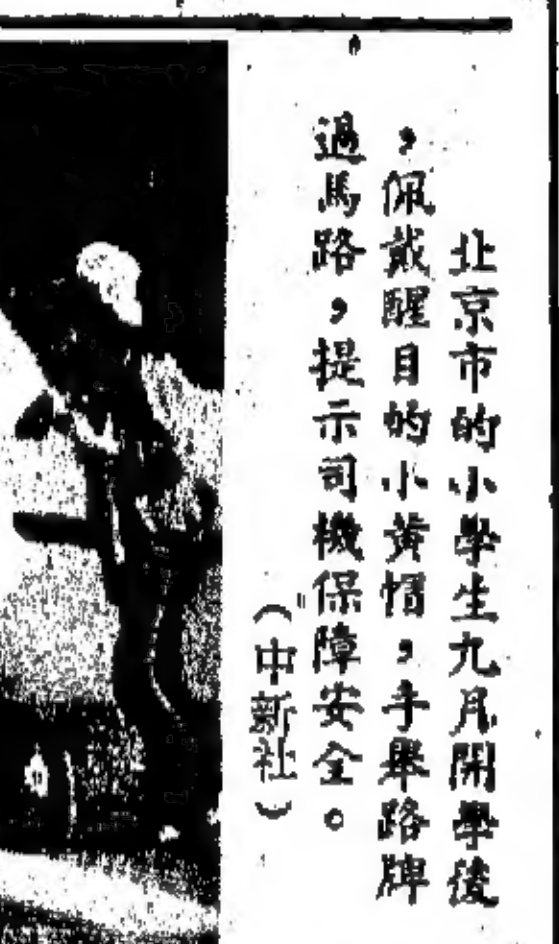 北京市的小學生九月開學後
，佩戴醒目的小黃帽，手舉路牌
過馬路，提示司機保障安全。
（中新社）